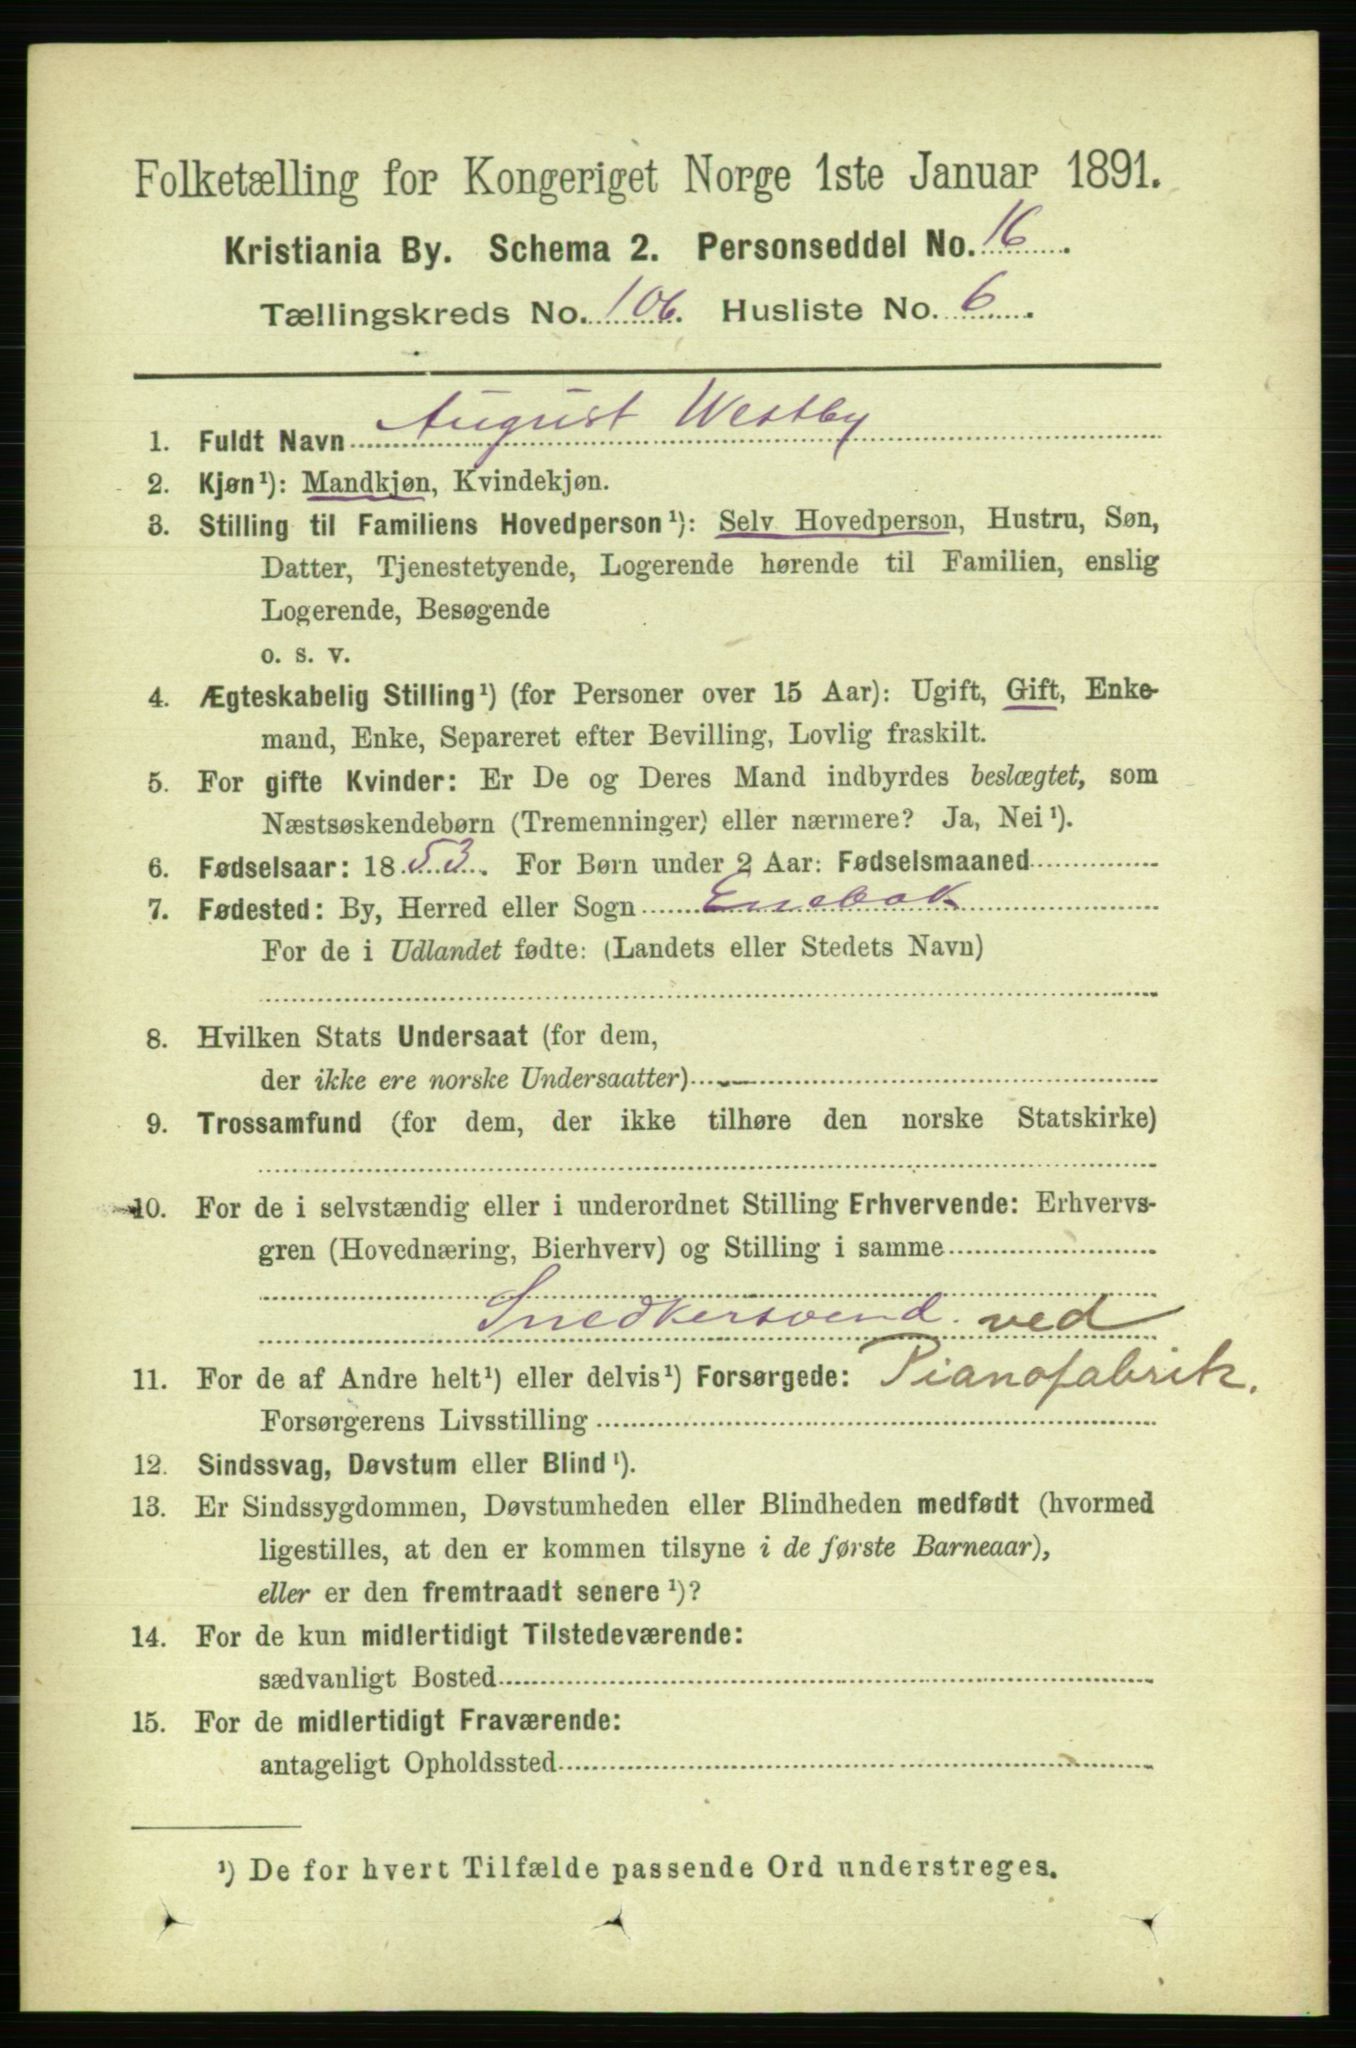 Folketælling for Kongeriget Norge 1ste Januar 1891.
Kristiania By. Schema 2. Personseddel No. 16.
Tællingskreds No. 106. Husliste No. 6.
1. Fuldt Navn August Westby
2. Kjøn¹): Mandkjøn, Kvindekjøn.
3. Stilling til Familiens Hovedperson¹): Selv Hovedperson, Hustru, Søn,
Datter, Tjenestetyende, Logerende hørende til Familien, enslig
Logerende, Besøgende
o. s. v.
4. Ægteskabelig Stilling¹) (for Personer over 15 Aar): Ugift, Gift, Enke-
mand, Enke, Separeret efter Bevilling, Lovlig fraskilt.
5. For gifte Kvinder: Er De og Deres Mand indbyrdes beslægtet, som
Næstsøskendebørn (Tremenninger) eller nærmere? Ja, Nei¹).
6. Fødselsaar: 1853. For Børn under 2 Aar: Fødselsmaaned
7. Fødested: By, Herred eller Sogn Enebak
For de i Udlandet fødte: (Landets eller Stedets Navn)
8. Hvilken Stats Undersaat (for dem,
der ikke ere norske Undersaatter)
9. Trossamfund (for dem, der ikke tilhøre den norske Statskirke)
10. For de i selvstændig eller i underordnet Stilling Erhvervende: Erhvervs-
gren (Hovednæring, Bierhverv) og Stilling i samme
Snedkersvend. ved
11. For de af Andre helt¹) eller delvis¹) Forsørgede: Pianofabrik.
Forsørgerens Livsstilling
12. Sindssvag, Døvstum eller Blind¹).
13. Er Sindssygdommen, Døvstumheden eller Blindheden medfødt (hvormed
ligestilles, at den er kommen tilsyne i de første Barneaar),
eller er den fremtraadt senere¹)?
14. For de kun midlertidigt Tilstedeværende:
sædvanligt Bosted
15. For de midlertidigt Fraværende:
antageligt Opholdssted
¹) De for hvert Tilfælde passende Ord understreges.